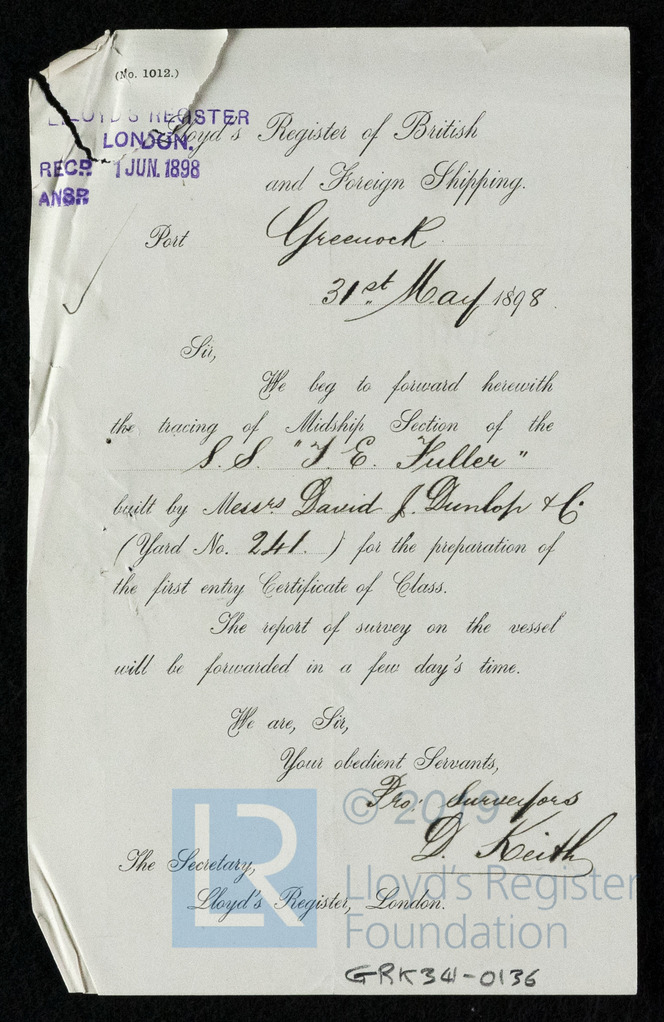 (No. 1012.)
LLOYD'S REGISTER
LONDON.
RECD 1 JUN. 1898
ANSD
Lloyd's Register of British
and Foreign Shipping.
Port Greenock
31st May 1898.
Sir,
We beg to forward herewith
the tracing of Midship Section of the
S.S. "J. E. Fuller"
built by Messrs David J. Dunlop & Co.
(Yard No. 241.) for the preparation of
the first entry Certificate of Class.
The report of survey on the vessel
will be forwarded in a few day's time.
We are, Sir,
Your obedient Servants,
Pro: Surveyors
D. Keith
The Secretary,
Lloyd's Register, London.
LR
© 2019
Lloyd's Register
Foundation
GRK341-0136